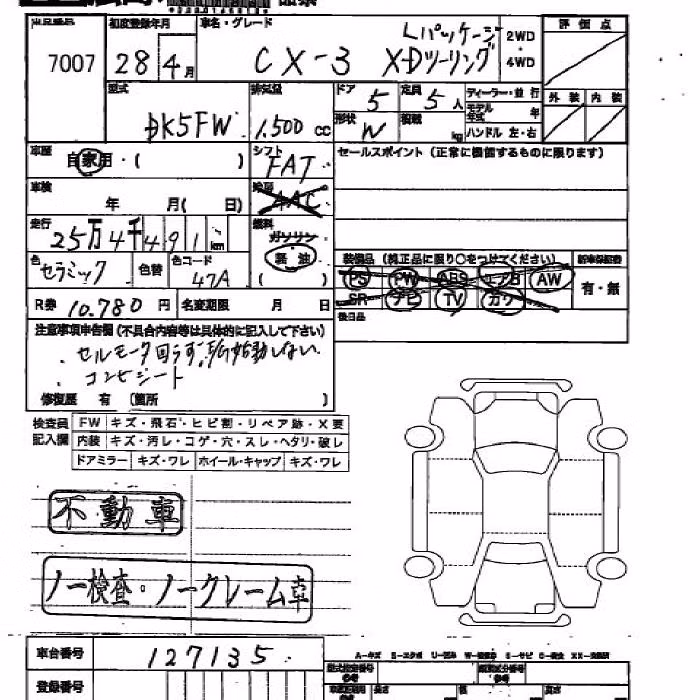 初度登録年月 車名・グレード 評価点
7007 28 4月 CX-3 XDツーリング Lパッケージ 2WD・4WD
型式 排気量 ドア 定員 ディーラー・並行 外装 内装
DK5FW 1,500 cc 5 5人 モデル年式 年
形状 W 積載 kg ハンドル 左・右
車歴 自家用・( ) シフト FAT セールスポイント (正常に機能するものに限ります)
車検 年 月( 日) 冷房 AAC
走行 25万4千491km 燃料 ガソリン 軽油 ( )
色 セラミック 色替 色コード 47A 装備品 (純正品に限り○をつけてください) 新車保証書
PS PW ABS エアB AW 有・無
SR ナビ TV カワ
R券 10.780円 名変期限 月 日 後日品
注意事項申告欄 (不具合内容等は具体的に記入して下さい)
・セルモータ回らず、始動しない
・コンビシート
修復歴 有 〔箇所 〕
検査員記入欄 FW キズ・飛石・ヒビ割・リペア跡・X要
内装 キズ・汚レ・コゲ・穴・スレ・ヘタリ・破レ
ドアミラー キズ・ワレ ホイール・キャップ キズ・ワレ
不動車
ノー検査・ノークレーム車
車台番号 127135
登録番号